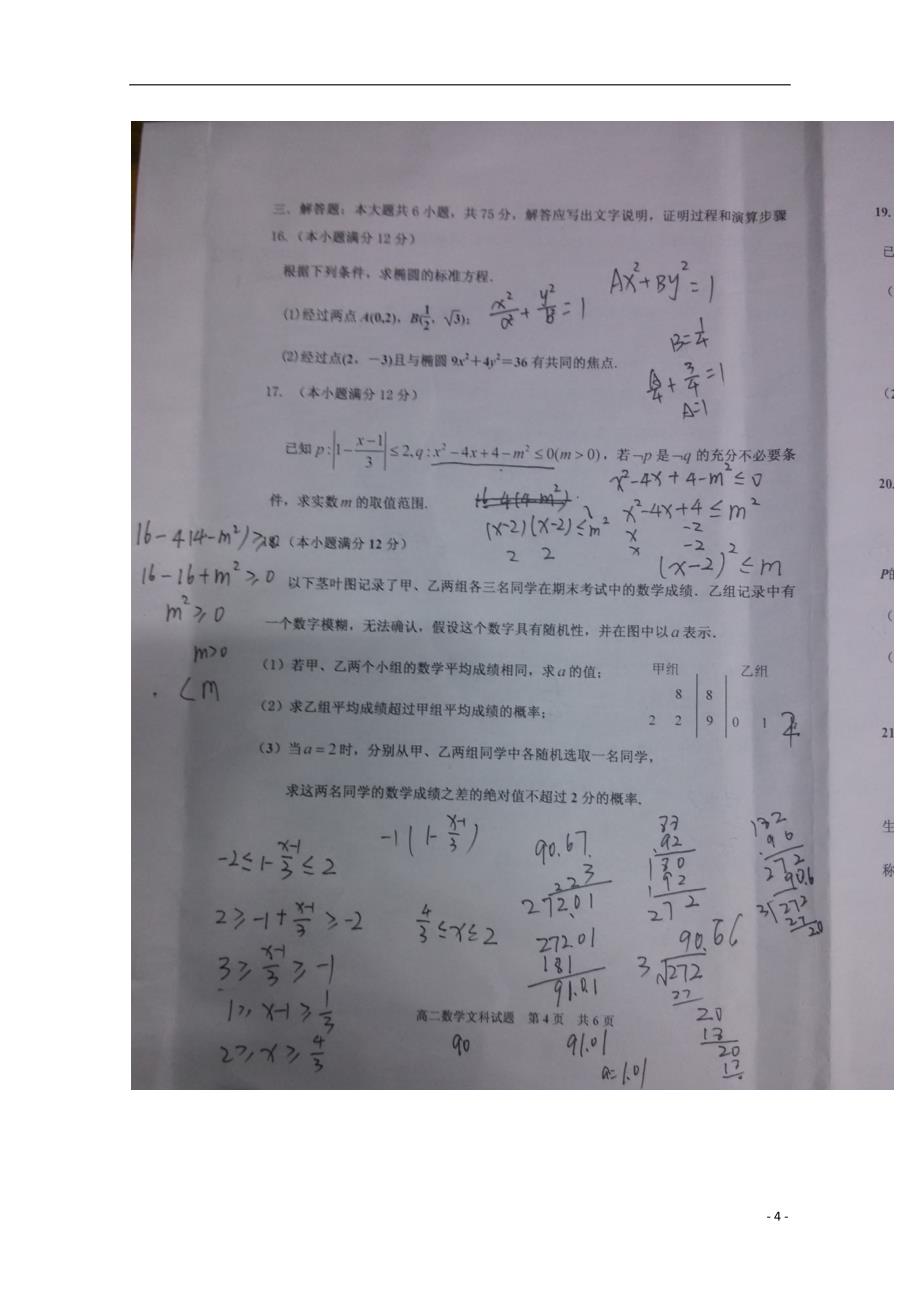 三、解答题:本大题共6小题,共75分,解答应写出文字说明,证明过程和演算步骤
16.(本小题满分12分)
根据下列条件,求椭圆的标准方程.
Ax²+By²=1
(1)经过两点A(0,2),B(1/2,√3);
x²/a²+y²/B=1
B=1/4
(2)经过点(2,-3)且与椭圆9x²+4y²=36有共同的焦点.
A/4+3/4=1
A=1
17.(本小题满分12分)
已知p:|1-(x-1)/3|≤2,q:x²-4x+4-m²≤0(m>0),若¬p是¬q的充分不必要条
x²-4x+4-m²≤0
件,求实数m的取值范围.
16-4(4-m²)
x²-4x+4≤m²
(x-2)(x-2)≤m²
x -2
x -2
2 2
(x-2)²≤m
16-4(4-m²)≥
(本小题满分12分)
16-16+m²≥0
m²≥0
m>0
<m
以下茎叶图记录了甲、乙两组各三名同学在期末考试中的数学成绩.乙组记录中有
一个数字模糊,无法确认,假设这个数字具有随机性,并在图中以a表示.
(1)若甲、乙两个小组的数学平均成绩相同,求a的值;
甲组 乙组
8 8
(2)求乙组平均成绩超过甲组平均成绩的概率;
2 2 9 0 1
(3)当a=2时,分别从甲、乙两组同学中各随机选取一名同学,
求这两名同学的数学成绩之差的绝对值不超过2分的概率.
-2≤1-(x-1)/3≤2
-1(1-(x-1)/3)
2≥-1+(x-1)/3≥-2
3≥(x-1)/3≥-1
1≥x-1≥1/3
2≥x≥4/3
4/3≤x≤2
90.67
3
272.01
27201
181
91.01
92
272
90.66
3√272
20
20
96
272
90.6
3√272
27
20
高二数学文科试题 第4页 共6页
90
91.01
a=1.01
19.
已
(
(2
20.
P的
(
(
21
生
称
- 4 -